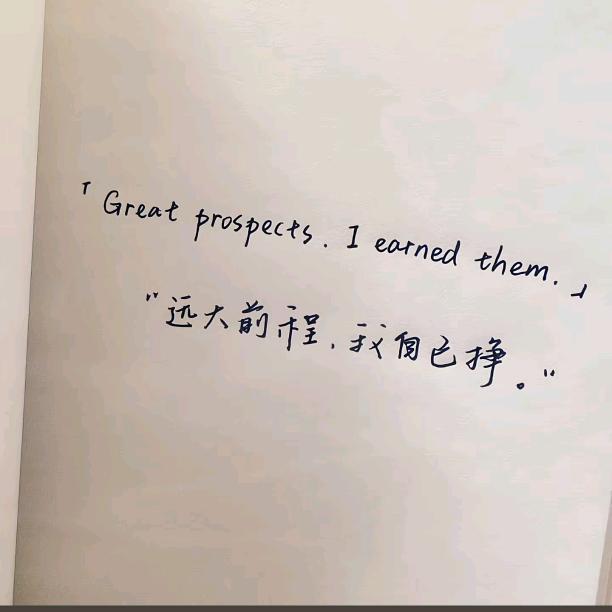 「Great prospects. I earned them.」
“远大前程，我自己挣。”